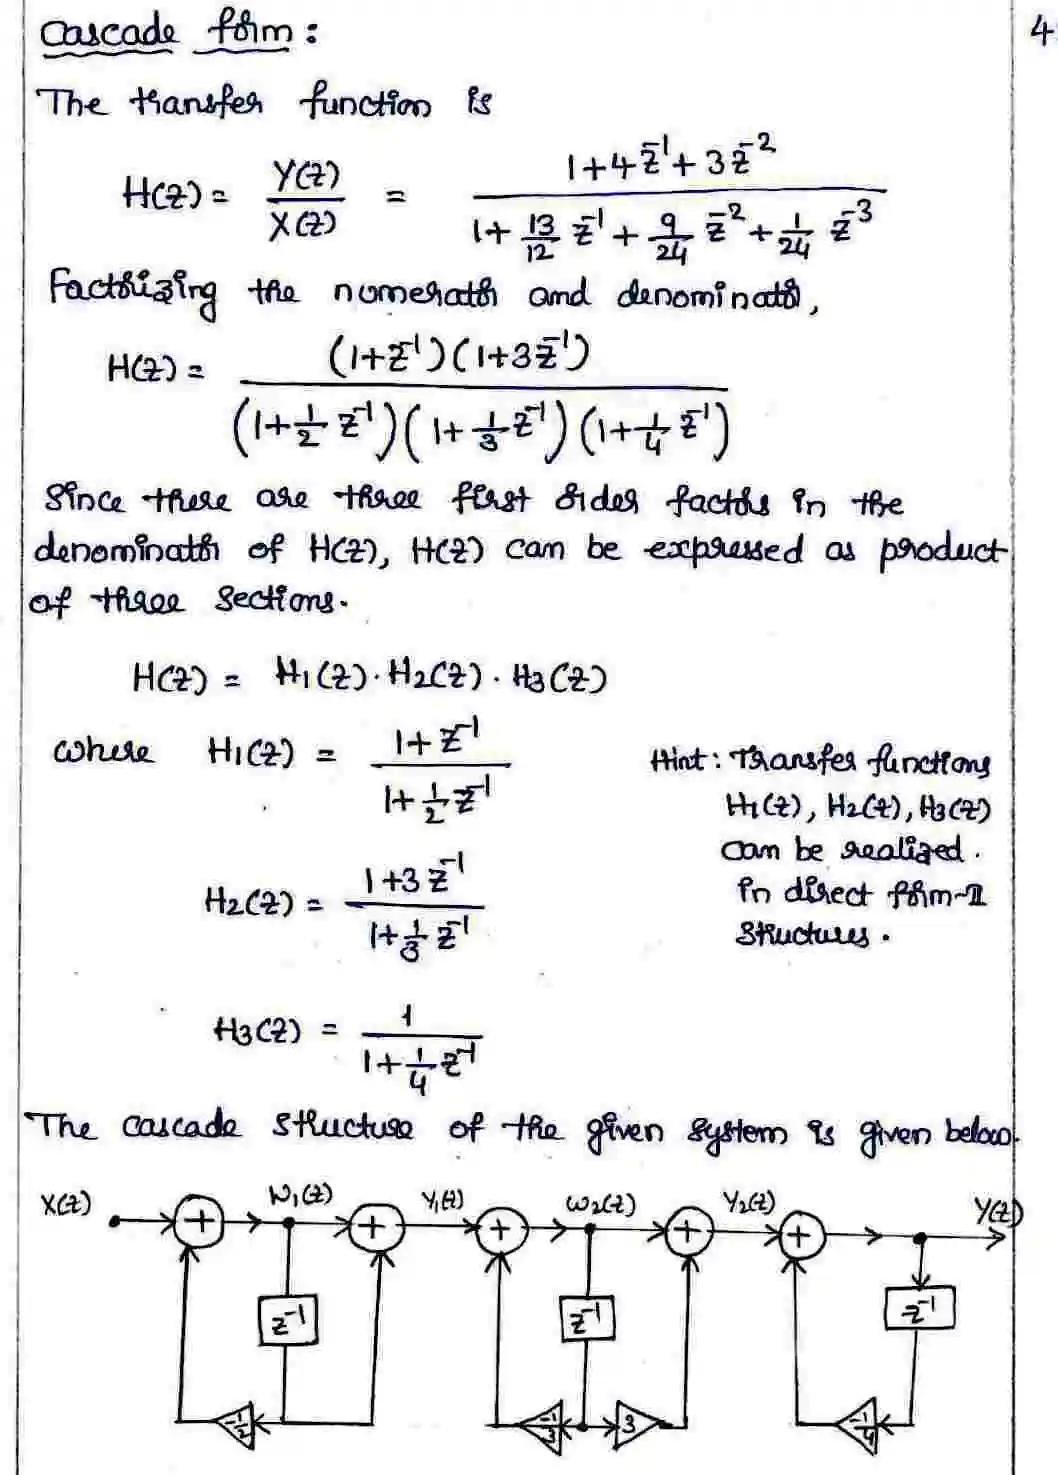 Cascade form :
4
The transfer function is
H(z) = Y(z)/X(z) = (1+4z^-1+3z^-2)/(1+13/12 z^-1+9/24 z^-2+1/24 z^-3)
Factorizing the numerator and denominator,
H(z) = (1+z^-1)(1+3z^-1)/((1+1/2 z^-1)(1+1/3 z^-1)(1+1/4 z^-1))
Since there are three first order factors in the
denominator of H(z), H(z) can be expressed as product
of three sections.
H(z) = H1(z) · H2(z) · H3(z)
where H1(z) = (1+z^-1)/(1+1/2 z^-1)
Hint : Transfer functions
H1(z), H2(z), H3(z)
can be realized.
in direct form-II
structures.
H2(z) = (1+3z^-1)/(1+1/3 z^-1)
H3(z) = 1/(1+1/4 z^-1)
The cascade structure of the given system is given below.
X(z) + W1(z) + Y1(z) + W2(z) + Y2(z) + Y(z)
z^-1 z^-1 z^-1
-1/2 -1/3 3 -1/4